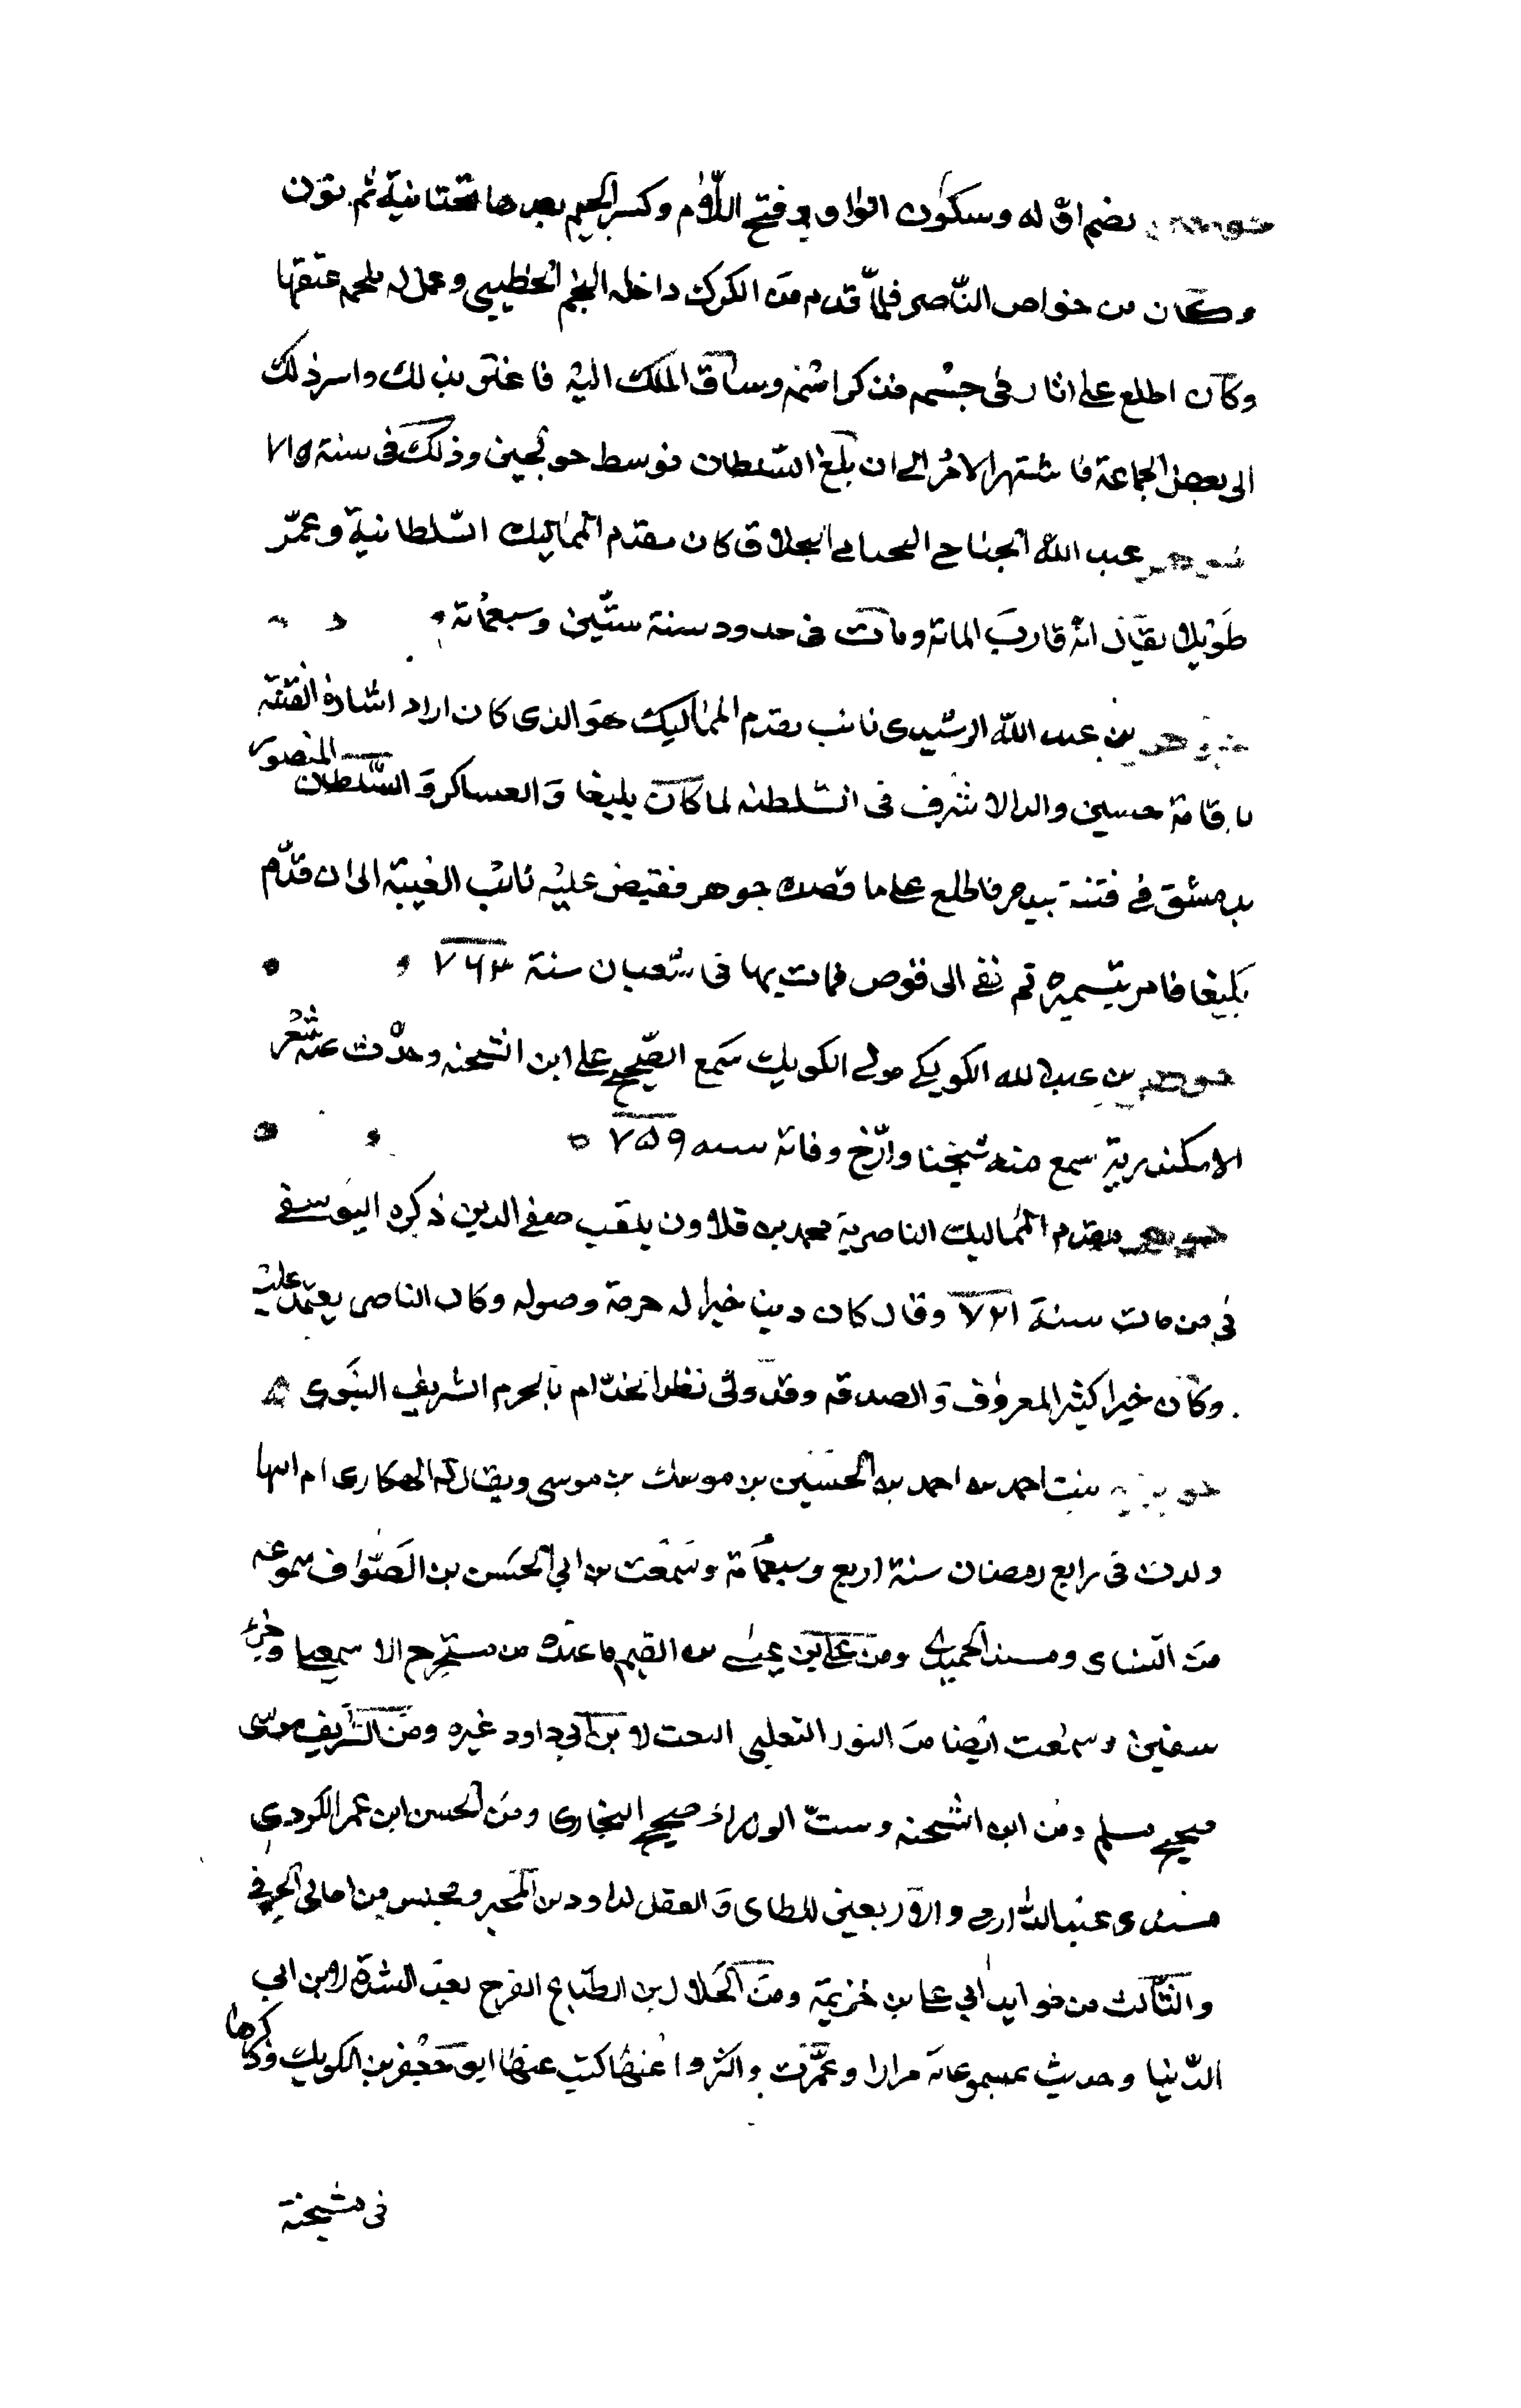 جولجين بضم اوله وسكون الواو وفتح اللام وكسر الجيم بعدها تحتانية ثم نون
وكان من خواص الناصر فلما قدم من الكرك داخله النجم الحطيبى وعمل له ملحمة عتقها
وكان اطلع على اثار فى جسمه فذكر اسمه وساق الملك اليه فاغتر بذلك واسر ذلك
الى بعض الجماعة فاشتهر الامر الى ان بلغ السلطان فوسط جولجين وذلك فى سنة ٧١٥
جوهر عبد الله الجناحى السحامى الجلاق كان مقدم المماليك السلطانية وعمّر
طويلا يقال انه قارب المائة ومات فى حدود سنة ستّين وسبعمائة
جوهر بن عبد الله الرشيدى نائب مقدم المماليك هو الذى كان اراد اشارة الفتنة
باقامة حسين والد الاشرف فى السلطنه لما كان يلبغا والعساكر والسّلطان المنصور
بدمشق فى فتنة بيدمر فاطلع على ما قصده جوهر فقبض عليه نائب الغيبة الى ان قدّم
يلبغا فامر بتسميره ثم نفى الى قوص فمات بها فى شعبان سنة ٧٦٣
جوهر بن عبد الله الكويكى مولى الكويك سمع الصّحيح على ابن الشحنه وحدّث عنه بثغر
الاسكندرية سمع منه شيخنا وارّخ وفاته سنه ٧٥٩
جوهر مقدم المماليك الناصرية محمد بن قلاوون يلقب صفى الدين ذكره اليوسفى
فى من مات سنة ٧٢١ وقال كان دينا خيرا له حرمة وصوله وكان الناصر يعتمد عليه
وكان خيرا كثير المعروف والصدقه وقد ولى نظر الخدّام بالحرم الشريف النبوى
جويرية بنت احمد بن احمد بن الحسين بن موسك بن موسى ويقال له الهكارى ام ابيها
ولدت فى رابع رمضان سنة اربع وسبعمائة وسمعت من ابى الحسن بن الصّواف مسموعه
من النساى ومسند الحميدى ومن على بن عيسى بن القيم ما عنده من مستخرج الاسمعيلى وجزء
سفين وسمعت ايضا من النور الثعلبى البعث لابن ابى داود غيره ومن الشريف موسى
صحيح مسلم ومن ابن الشحنه وستّ الوزراء صحيح البخارى ومن الحسن ابن عمر الكردى
مسندى عبد الدارمى والاربعين للطاى والعقل لداود بن المحبر ومجلس من امالى الحرفى
والثالث من فوايد ابى على بن خزيمة ومن الجلال بن الطباع الفرج بعد الشدة لابن ابى
الدّنيا وحدثت بمسموعاته مرارا وعمّرت واكثروا عنها كتب عنها ابو جعفر بن الكويك وذكرها

فى مشيخته